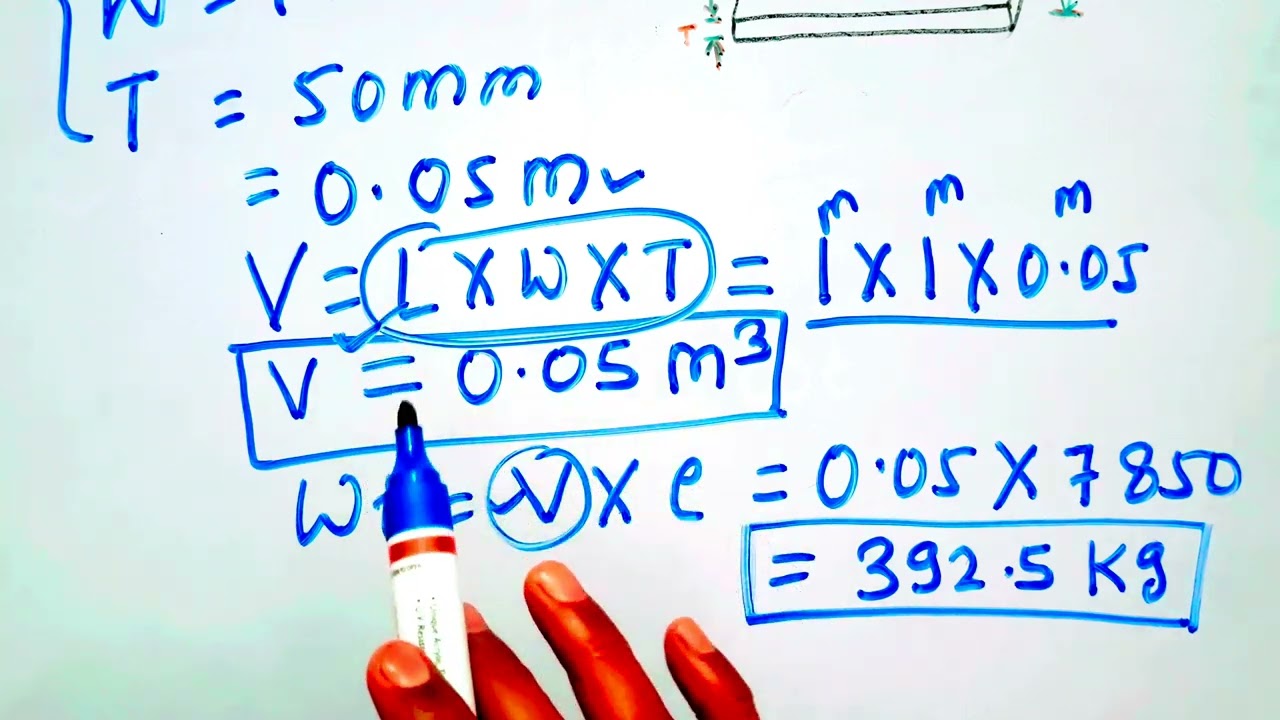 W =
T
T = 50mm
= 0.05 m
V = L X W X T = 1 X 1 X 0.05
m m m
V = 0.05 m³
W = V X ρ = 0.05 X 7850
= 392.5 Kg